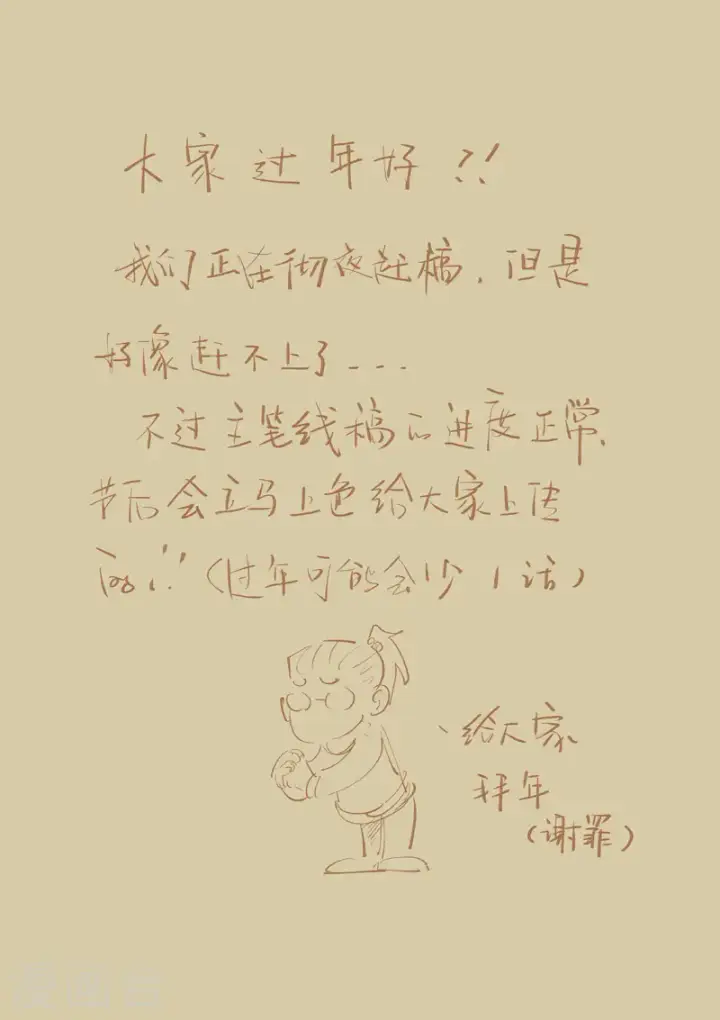 大家过年好!!
我们正在彻夜赶稿.但是
好像赶不上了...
不过主笔线稿的进度正常、
节后会立马上色给大家上传
的!!(过年可能会少1话)
给大家
拜年
(谢罪)